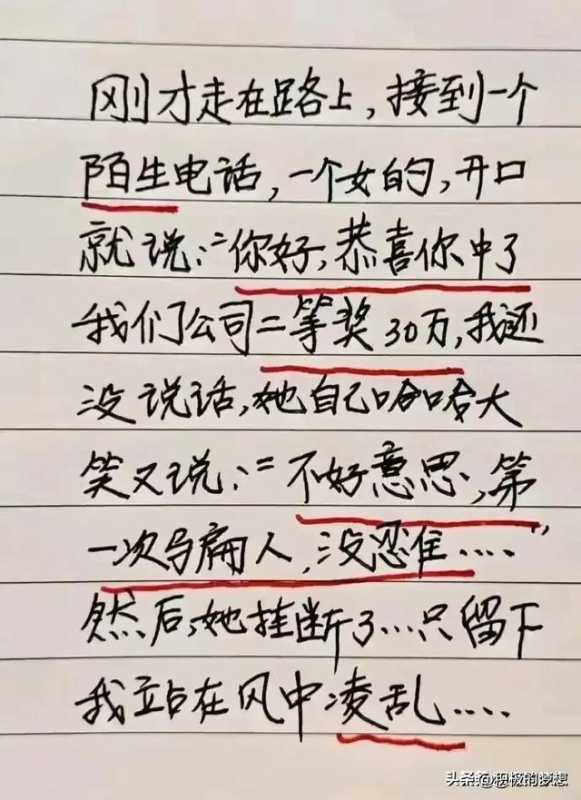 刚才走在路上,接到一个
陌生电话,一个女的,开口
就说:"你好,恭喜你中了
我们公司二等奖30万,我还
没说话,她自己哈哈大
笑又说:"不好意思,第
一次骗人,没忍住...."
然后,她挂断了...只留下
我站在风中凌乱....
头条@积极的梦想